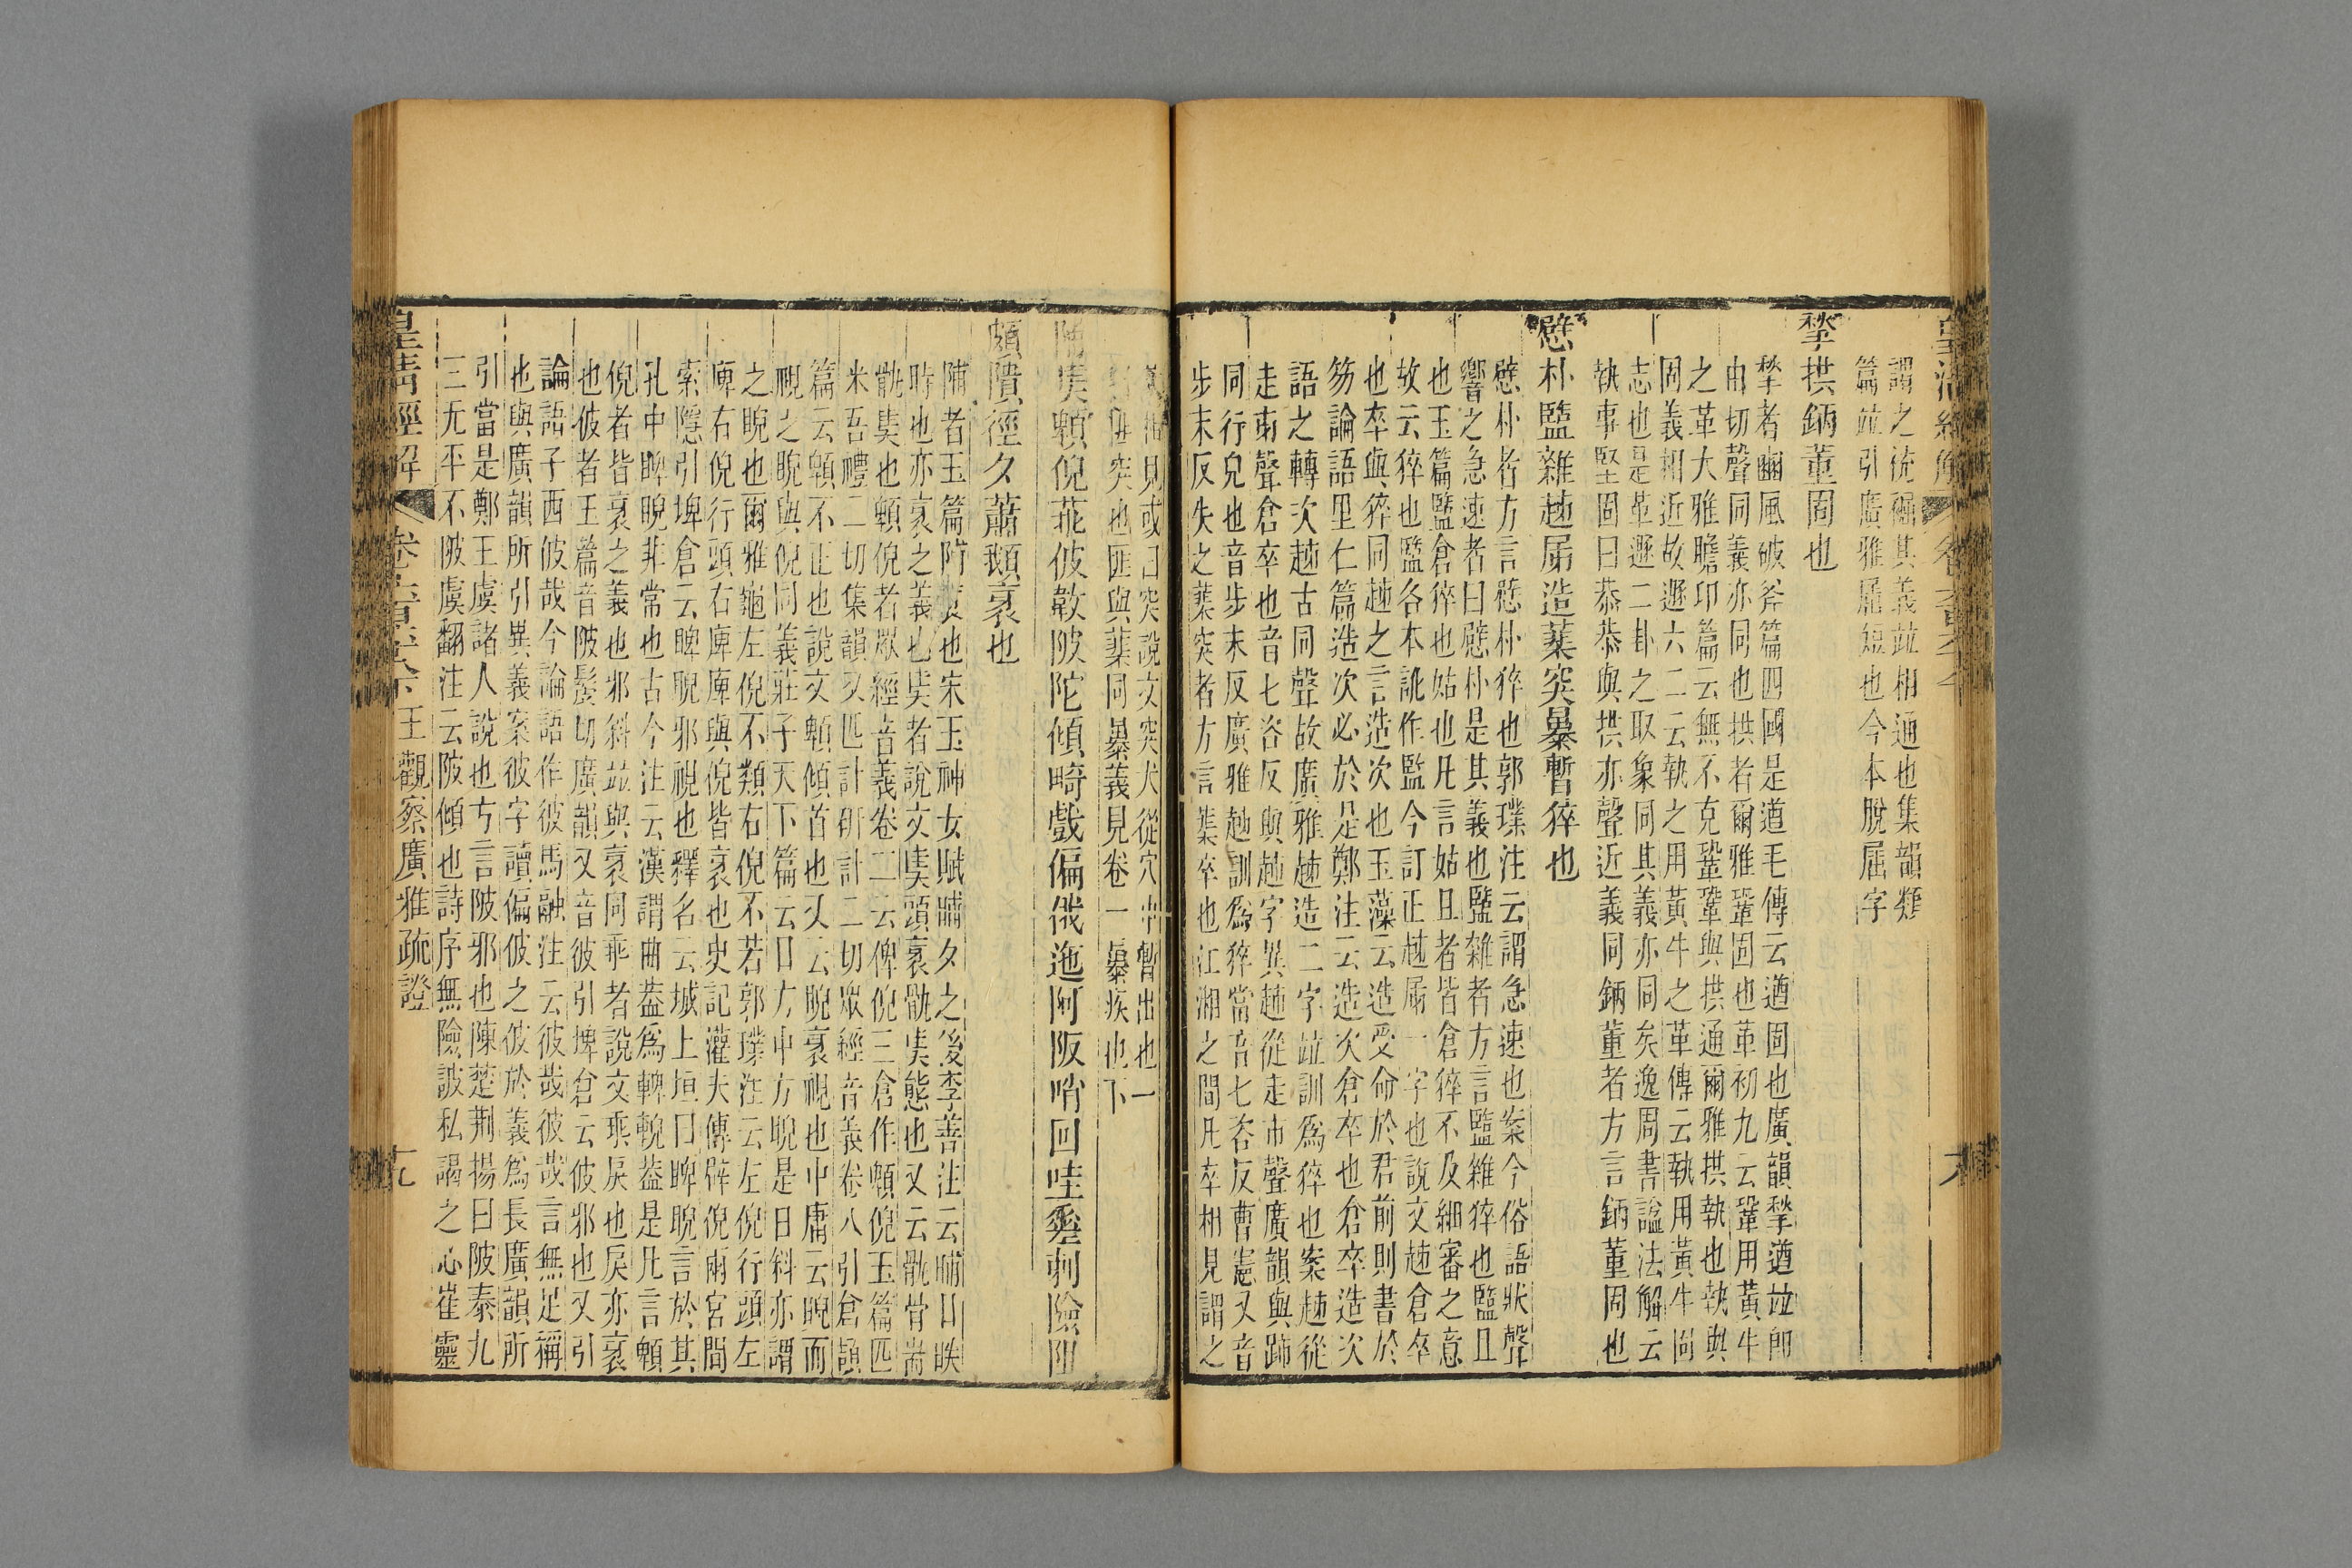 謂之䘿䙝其義竝相通也集韻類
篇竝引廣雅𡲬短也今本脫𡲬字
拲拱鈵董固也
拲者豳風破斧篇四國是遒毛傳云遒固也廣韻拲遒竝卽
由切聲同義亦同也拱者爾雅鞏固也革初九云鞏用黃牛
之革大雅瞻卬篇云無不克鞏鞏與拱通爾雅拱執也執與
固義相近故遯六二云執之用黃牛之革傳云執用黃牛固
志也是革遯二卦之取象同其義亦同矣逸周書謚法解云
執事堅固曰恭恭與拱亦聲近義同鈵董者方言鈵董固也
憵朴䀋雜䞭屚造葉突暴暫猝也
憵朴者方言憵朴猝也郭璞注云謂急速也案今俗語狀聲
響之急速者曰憵朴是其義也䀋雜者方言䀋雜猝也䀋且
也玉篇䀋倉猝也姑也凡言姑且者皆倉猝不及細審之意
故云猝也䀋各本訛作監今訂正䞭屚一字也說文䞭倉卒
也卒與猝同䞭之言造次也玉藻云造受命於君前則書於
笏論語里仁篇造次必於是鄭注云造次倉卒也倉卒造次
語之轉次䞭古同聲故廣雅䞭造二字竝訓爲猝也案䞭從
走朿聲倉卒也音七咨反與趀字異趀從走巿聲廣韻與跡
同行皃也音步末反廣雅趀訓爲猝當音七咨反曹憲又音
步末反失之葉突者方言葉卒也江湘之閒凡卒相見謂之
葉相見或曰突說文突犬從穴中暫出也一
曰匪突也匪與葉同暴義見卷一暴疾也下
陠㚖頼倪乖佊㪉陂陀傾畸戲偏俄迤阿阪哨回哇㢲刺險阻
頗隤徑夂蕭䫏衺也
陠者玉篇陠衺也宋玉神女賦晡夕之後李善注云晡日昳
時也亦衺之義也㚖者說文㚖頭衺骫㚖態也又云骫骨耑
骫㚖也頼倪者眾經音義卷二云俾倪三倉作頼倪玉篇匹
米吾禮二切集韻又匹計硏計二切眾經音義卷八引倉頡
篇云頼不正也說文頼傾首也又云睨衺視也中庸云睨而
視之睨與倪同義莊子天下篇云日方中方睨是日斜亦謂
之睨也爾雅龜左倪不類右倪不若郭璞注云左倪行頭左
庳右倪行頭右庳庳與倪皆衺也史記灌夫傳辟倪兩宮閒
索隱引埤倉云睥睨邪視也釋名云城上垣曰睥睨言於其
孔中睥睨非常也古今注云漢謂曲葢爲䡟輗葢是凡言頼
倪者皆衺之義也邪斜竝與衺同乖者說文乖戾也戾亦衺
也佊者玉篇音陂髲切廣韻又音彼引埤倉云佊邪也又引
論語子西佊哉今論語作彼馬融注云彼哉彼哉言無足稱
也與廣韻所引異義案彼字讀偏佊之佊於義爲長廣韻所
引當是鄭王虞諸人說也方言陂邪也陳楚荆揚曰陂泰九
三无平不陂虞翻注云陂傾也詩序無險詖私謁之心崔靈
皇淸經解
卷六百六十八下
王觀察廣雅疏證
十九